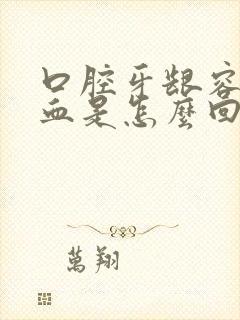 口腔牙龈容
血是怎麼回
萬翔